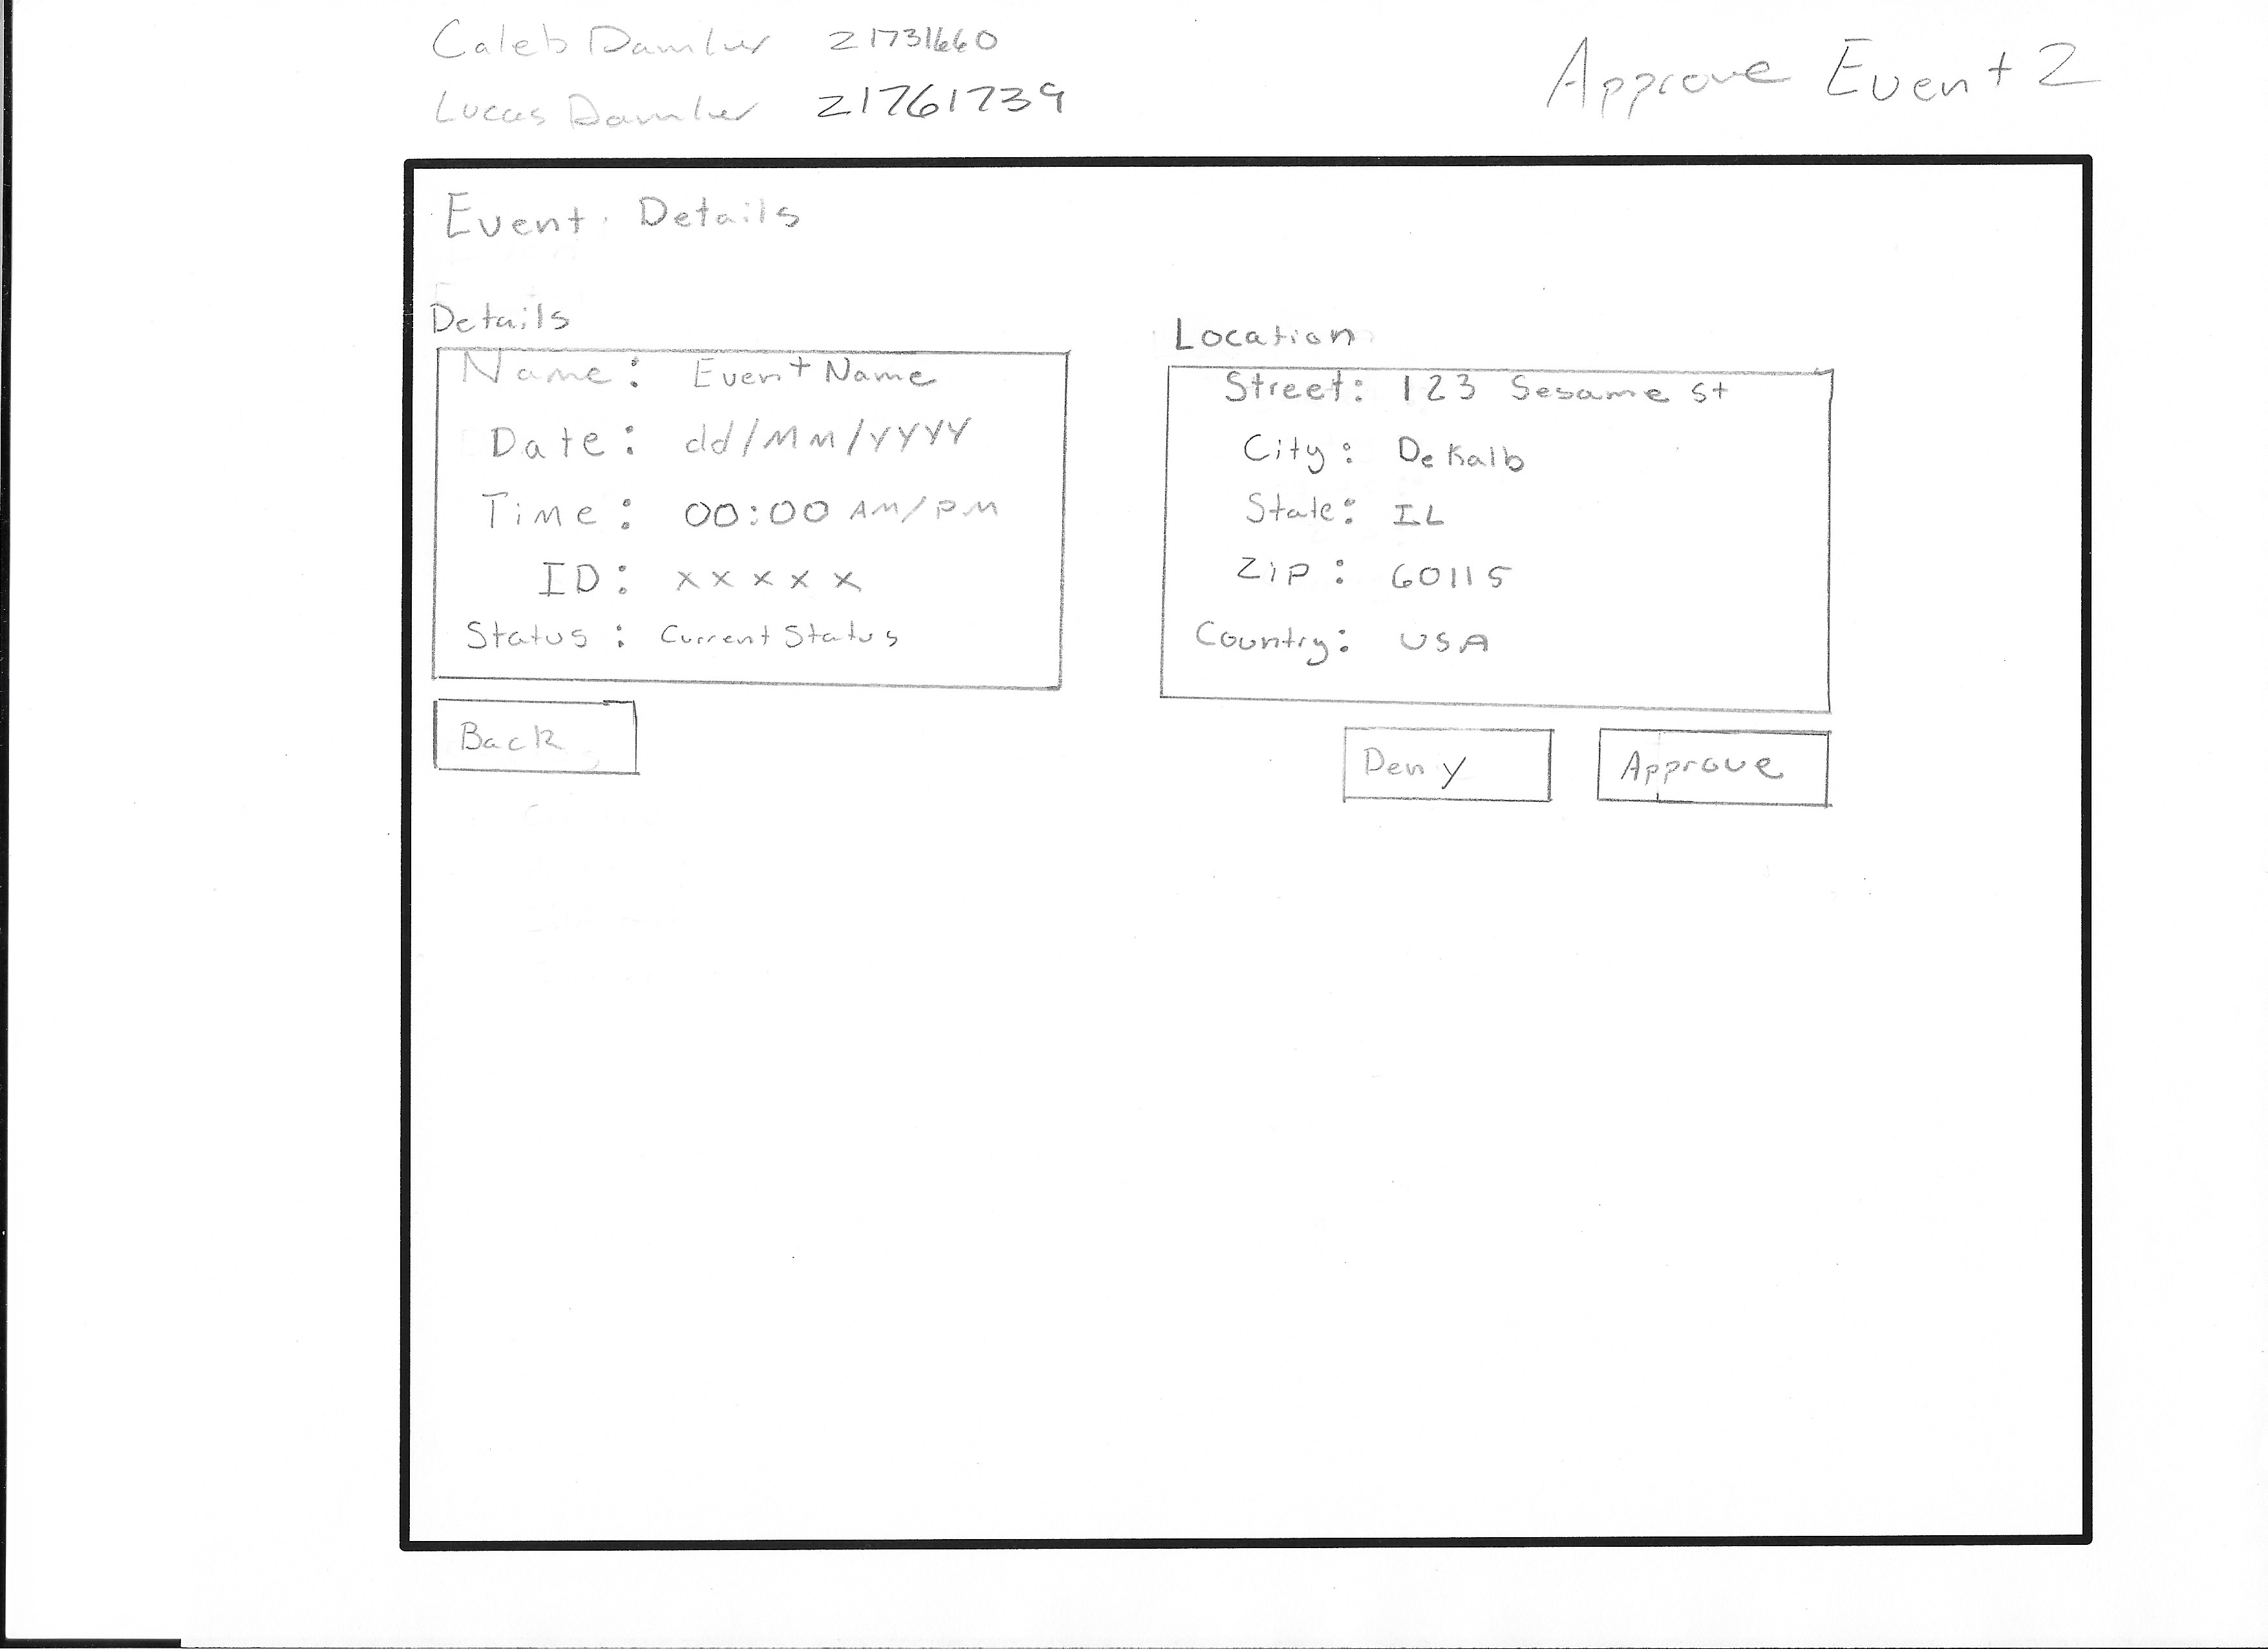 Caleb Damlwr z1731660
Lucas Damlwr z1761739
Approve Event 2
Event Details
Details
Name: Event Name
Date: dd/MM/YYYY
Time: 00:00 AM/PM
ID: xxxxx
Status: Current Status
Back
Location
Street: 123 Sesame St
City: DeKalb
State: IL
Zip: 60115
Country: USA
Deny
Approve